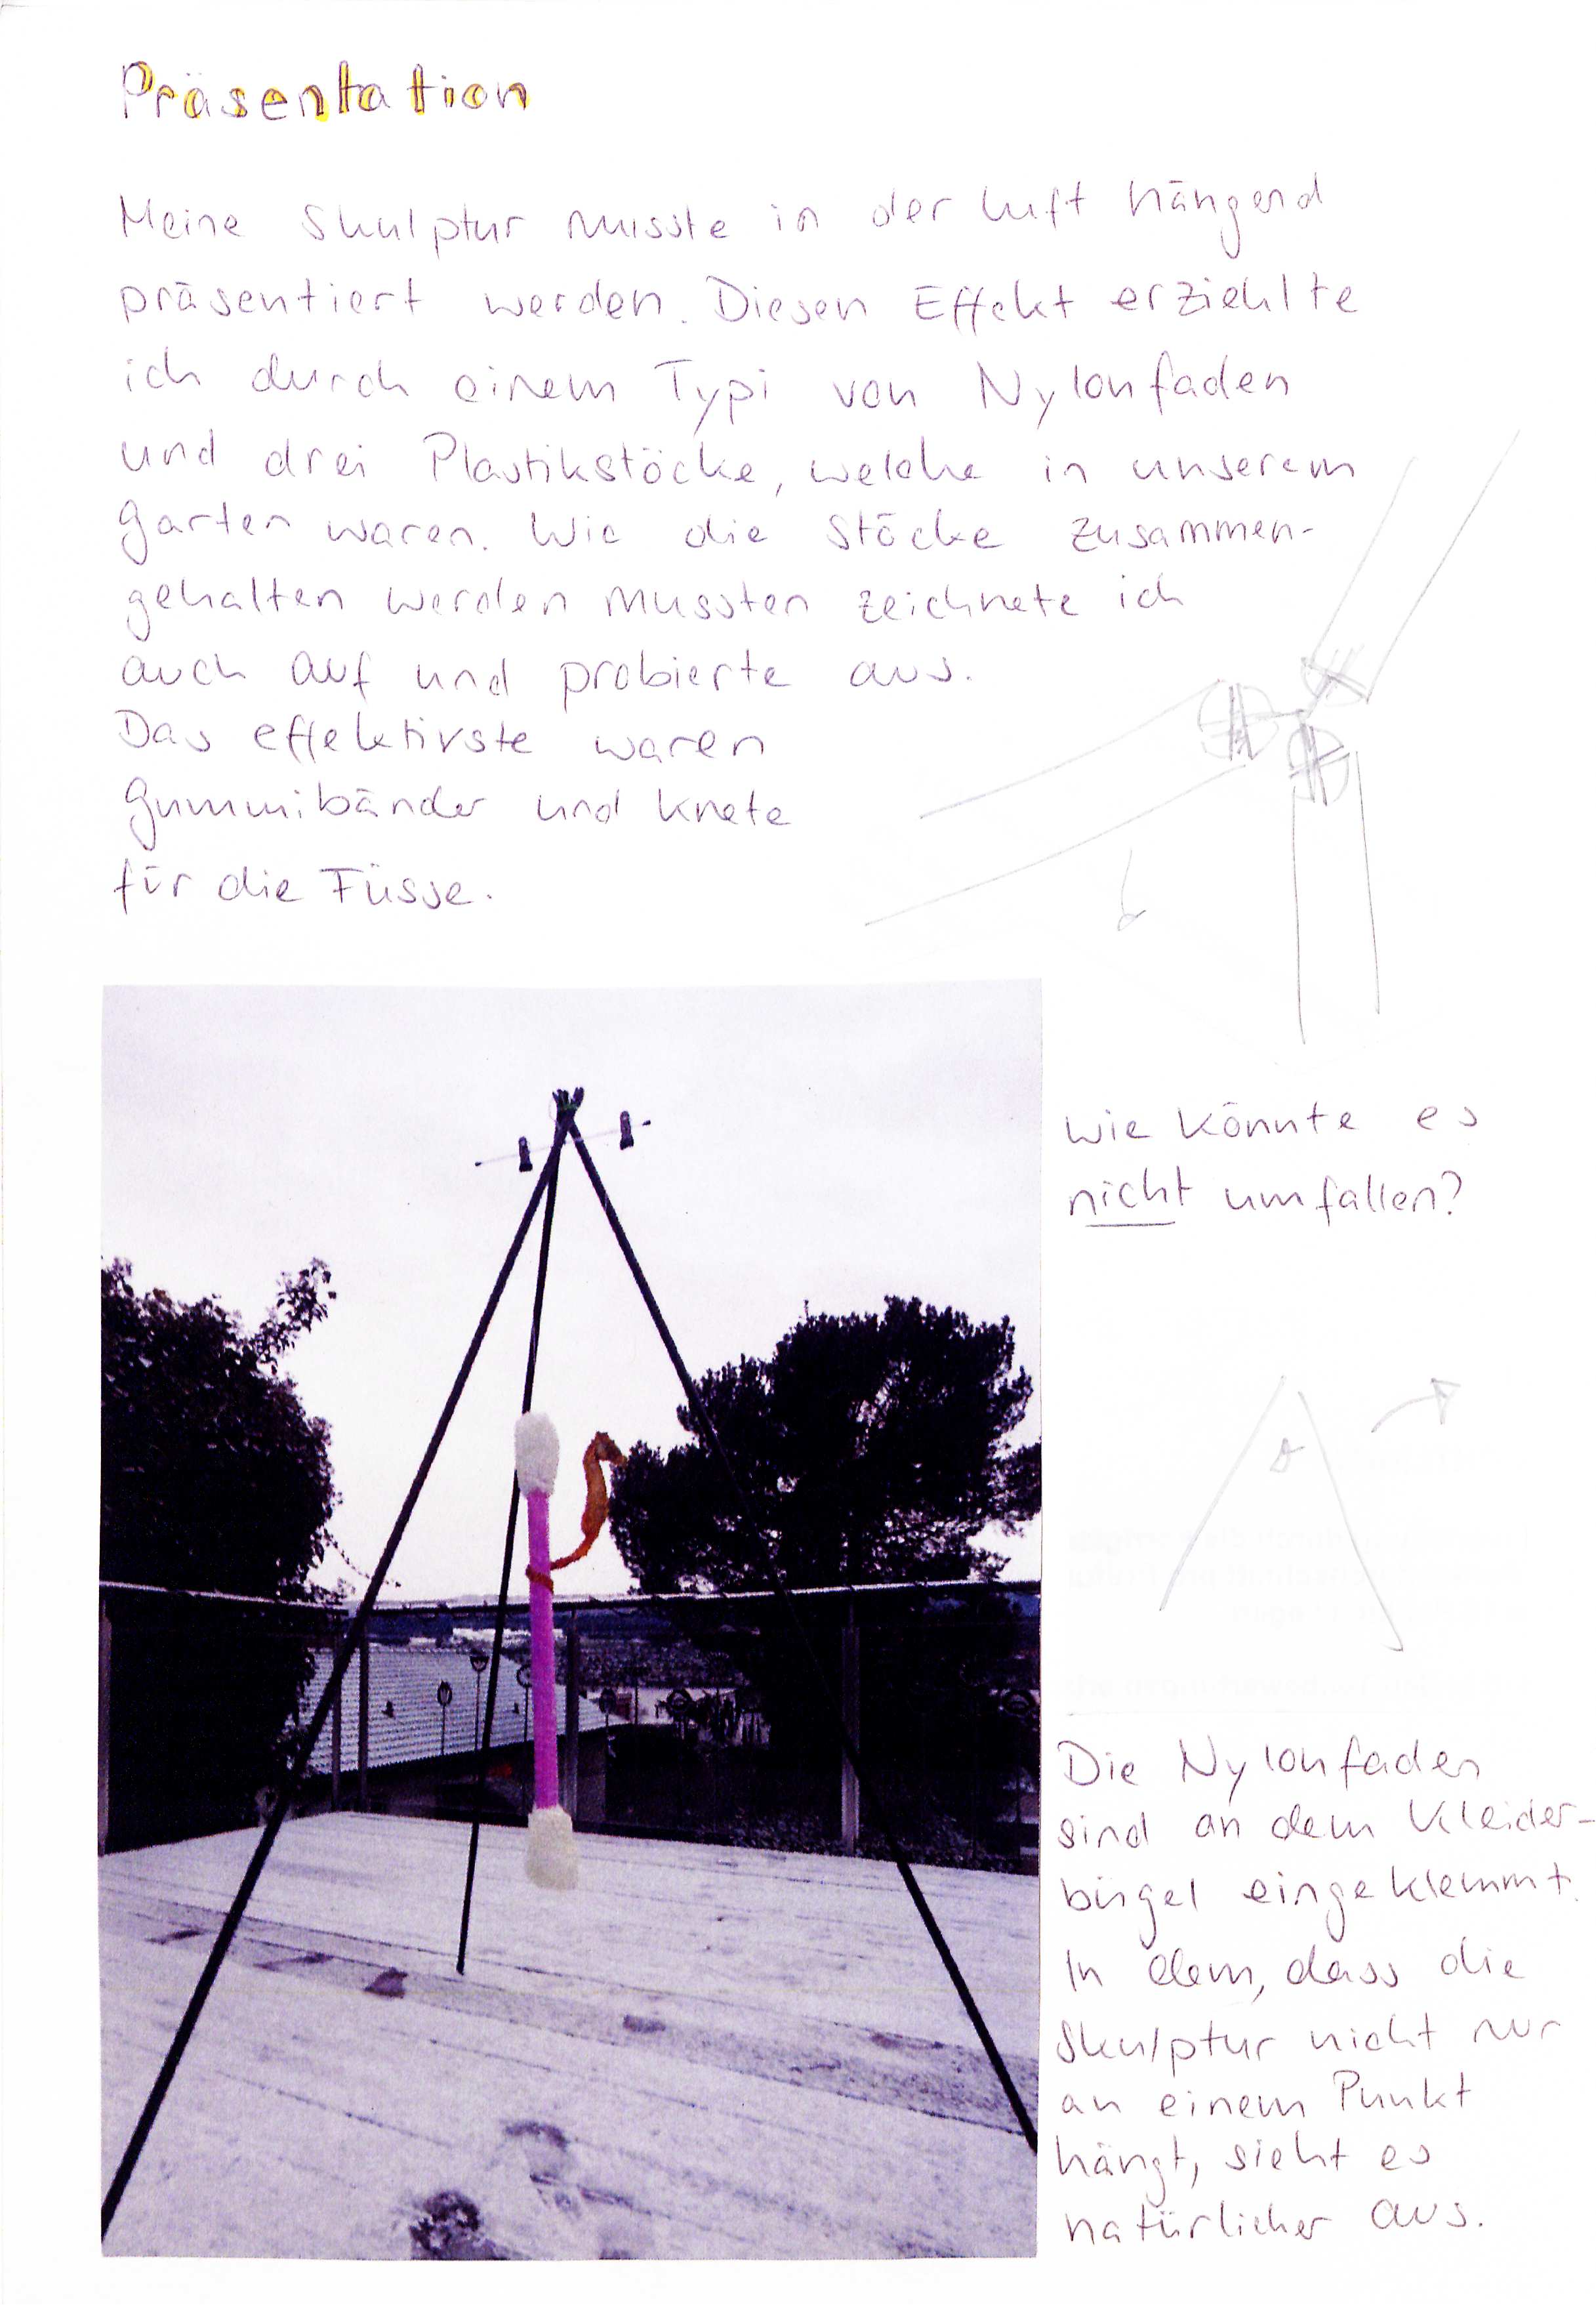 Präsentation
Meine Skulptur musste in der Luft hängend
präsentiert werden. Diesen Effekt erziehlte
ich durch einem Typi von Nylonfaden
und drei Plastikstöcke, welche in unserem
Garten waren. Wie die Stöcke zusammen-
gehalten werden mussten zeichnete ich
auch auf und probierte aus.
Das effektivste waren
Gummibänder und Knete
für die Füsse.
Wie könnte es
nicht umfallen?
Die Nylonfaden
sind an dem Kleider-
bügel eingeklemmt.
In dem, dass die
Skulptur nicht nur
an einem Punkt
hängt, sieht es
natürlicher aus.